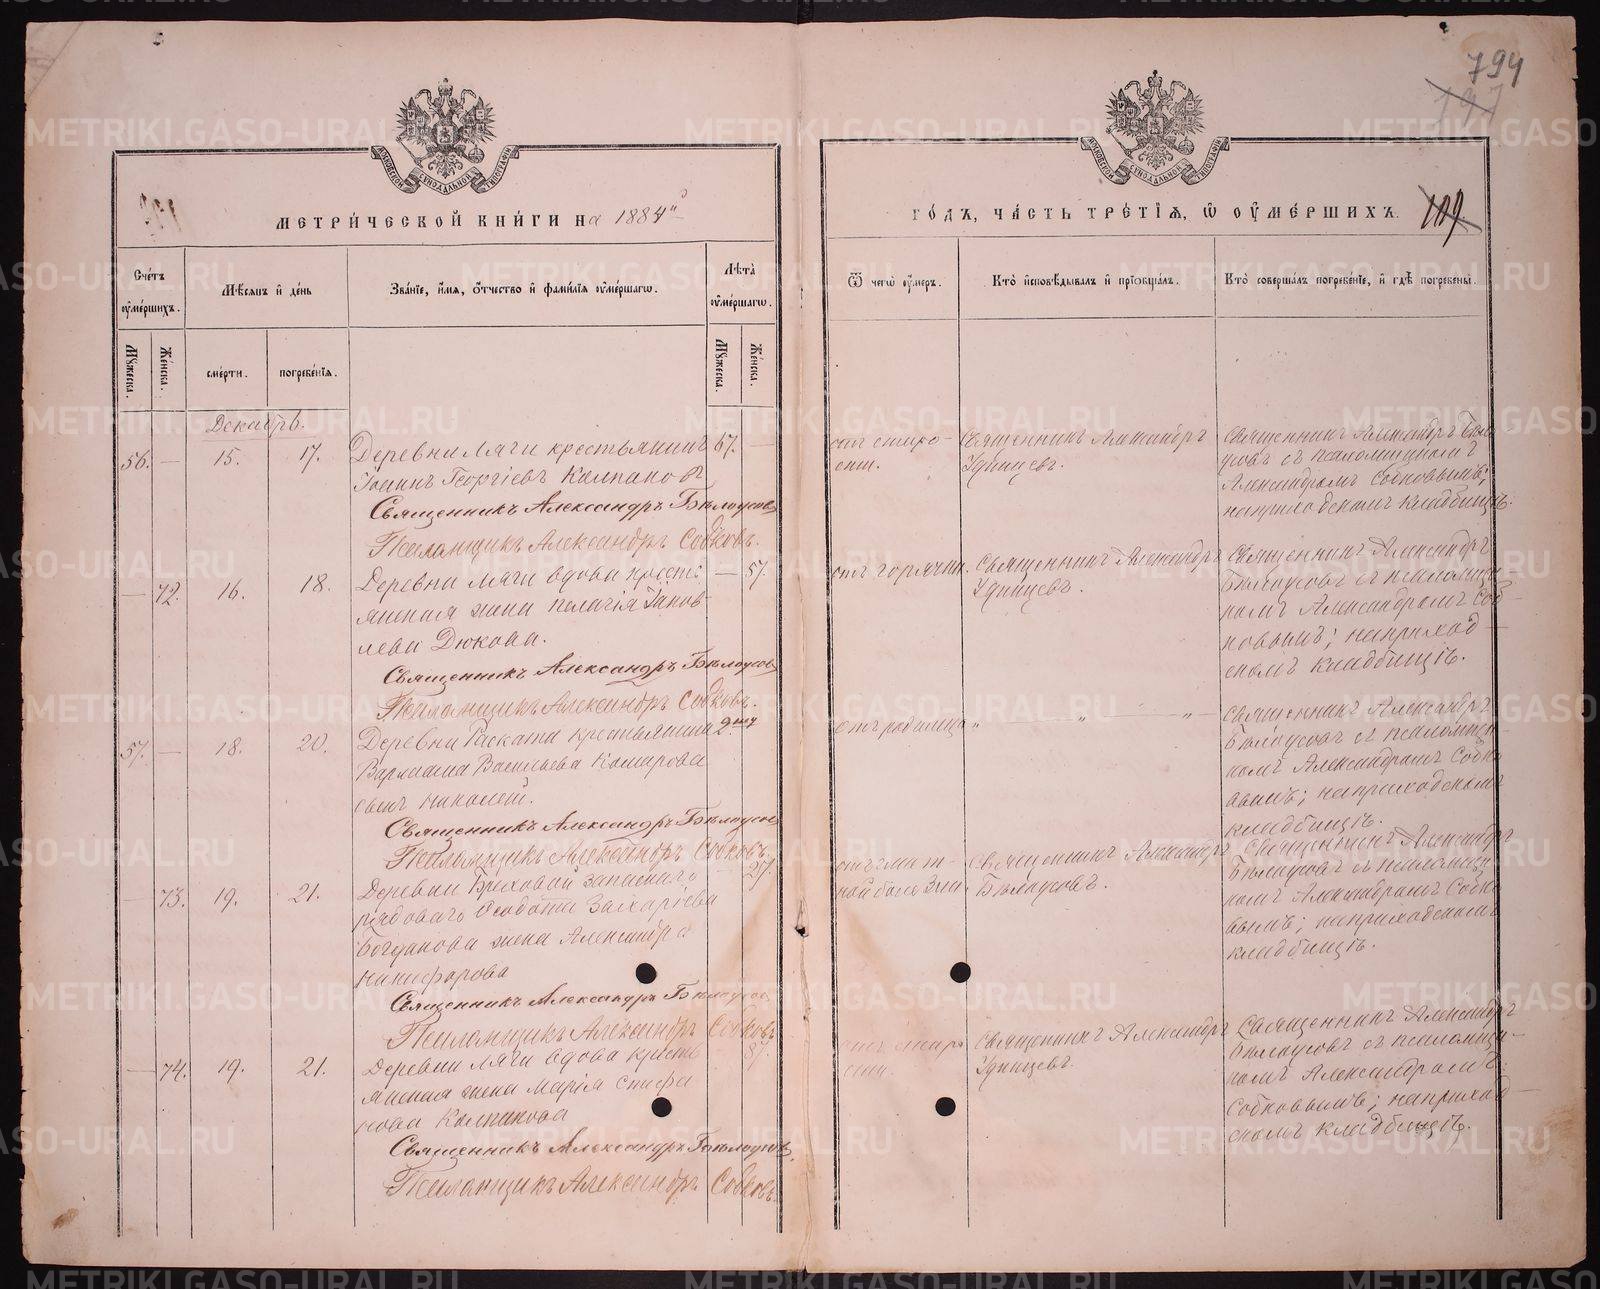 794
197
МОСКОВСКОЙ СѴНОДАЛЬНОЙ ТИПОГРАФІИ
МОСКОВСКОЙ СѴНОДАЛЬНОЙ ТИПОГРАФІИ
МЕТРИ́ЧЕСКОЙ КНИ́ГИ на 1884й
ГО́ДЪ, ЧА́СТЬ ТРЕ́ТІѦ, Ѽ ОУМЕ́РШИХЪ. 109.
Сче́тъ оуме́ршихъ.
Мѣ́сѧцъ и де́нь
Зва́нїе, и́мѧ, о́тчество и фами́лїѧ оуме́ршагѡ.
Лѣ́та оуме́ршагѡ.
Ѿ чегѡ̀ оу́меръ.
Кто̀ и҆сповѣ́дывалъ и прїобща́лъ.
Кто̀ соверша́лъ погребе́нїе, и гдѣ̀ погребены̀.
Мꙋ́жеска.
Же́нска.
сме́рти.
погребе́нїѧ.
Мꙋ́жеска.
Же́нска.
Декабрь.
56. — 15. 17. Деревни Лягы крестьянинъ 67. —
Іоаннъ Георгіевъ Колпаков
Священникъ Александръ Бѣлоусовъ
Псаломщикъ Александръ Собковъ.
отъ старо-
сти.
Священникъ Александръ
Удинцевъ.
Священникъ Александръ Бѣло-
усовъ съ псаломщикомъ
Александромъ Собковымъ;
на приходскомъ кладбищѣ.
— 72. 16. 18. Деревни Лягы вдова кресть — 57.
янская жена Пелагія Іаков-
лева Дюкова.
Священникъ Александръ Бѣлоусов
Псаломщикъ Александръ Собковъ.
отъ горячки.
Священникъ Александръ
Удинцевъ.
Священникъ Александръ
Бѣлоусовъ съ псаломщи-
комъ Александромъ Соб-
ковымъ; на приход-
скомъ кладбищѣ.
57. — 18. 20. Деревни Раскати крестьянина 2 —
Варлаама Васильева Комарова
сынъ Николай.
Священникъ Александръ Бѣлоусов
Псаломщикъ Александръ Собковъ.
отъ родимца „ — „ — „ —
Священникъ Александръ
Бѣлоусовъ съ псаломщи-
комъ Александромъ Собко-
вымъ; на приходскомъ
кладбищѣ.
— 73. 19. 21. Деревни Бреховой запаснаго — 27.
рядоваго Захаріева
Богданова жена Александра
Никифорова
Священникъ Александръ Бѣлоусов
Псаломщикъ Александръ Собковъ
Священникъ Александръ
Бѣлоусовъ.
Священникъ Александръ
Бѣлоусовъ съ псаломщи-
комъ Александромъ Собко-
вымъ; на приходскомъ
кладбищѣ.
— 74. 19. 21. Деревни Лягы вдова кресть — 87.
янская жена Марія Стефа
нова Колпакова
Священникъ Александръ Бѣлоусовъ
Псаломщикъ Александръ Собковъ.
отъ старо
сти.
Священникъ Александръ
Удинцевъ.
Священникъ Александръ
Бѣлоусовъ съ псаломщи-
комъ Александромъ
Собковымъ; на приход-
скомъ кладбищѣ.